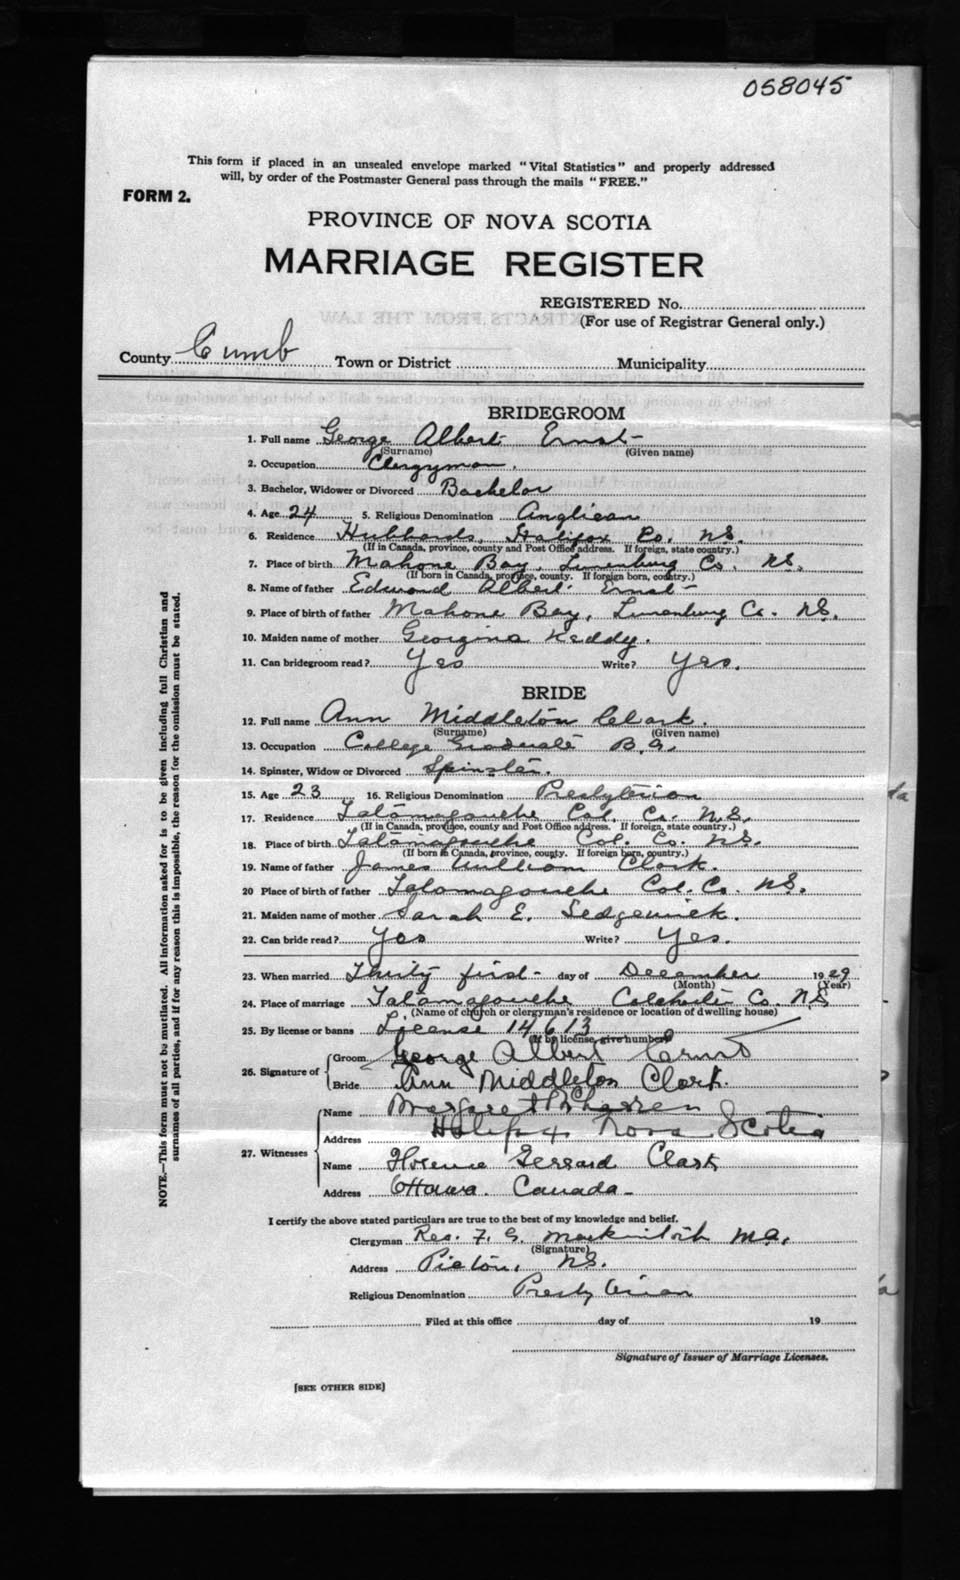 058045
This form if placed in an unsealed envelope marked "Vital Statistics" and properly addressed
will, by order of the Postmaster General pass through the mails "FREE."
FORM 2.
PROVINCE OF NOVA SCOTIA
MARRIAGE REGISTER
REGISTERED No.
(For use of Registrar General only.)
County Cumb Town or District Municipality
BRIDEGROOM
1. Full name George Albert Ernst
(Surname) (Given name)
2. Occupation Clergyman.
3. Bachelor, Widower or Divorced Bachelor
4. Age 24 5. Religious Denomination Anglican
6. Residence Hubbards, Halifax Co. N.S.
(If in Canada, province, county and Post Office address. If foreign, state country.)
7. Place of birth Mahone Bay, Lunenburg Co. N.S.
(If born in Canada, province, county. If foreign born, country.)
8. Name of father Edward Albert Ernst
9. Place of birth of father Mahone Bay, Lunenburg Co. N.S.
10. Maiden name of mother Georgina Keddy.
11. Can bridegroom read? Yes Write? Yes.
BRIDE
12. Full name Ann Middleton Clark.
(Surname) (Given name)
13. Occupation College Graduate B.A.
14. Spinster, Widow or Divorced Spinster.
15. Age 23 16. Religious Denomination Presbyterian
17. Residence Tatamagouche Col. Co. N.S.
(If in Canada, province, county and Post Office address. If foreign, state country.)
18. Place of birth Tatamagouche Col. Co. N.S.
(If born in Canada, province, county. If foreign born, country.)
19. Name of father James William Clark.
20 Place of birth of father Tatamagouche Col. Co. N.S.
21. Maiden name of mother Sarah E. Sedgewick.
22. Can bride read? Yes Write? Yes.
23. When married Thirty first day of December 1929
(Month) (Year)
24. Place of marriage Tatamagouche Colchester Co. N.S
(Name of church or clergyman's residence or location of dwelling house)
25. By license or banns License 14613
(If by license, give number)
26. Signature of Groom George Albert Ernst
Bride Ann Middleton Clark.
27. Witnesses
Name Margaret B
Address Halifax Nova Scotia
Name Florence Gerrard Clark
Address Ottawa. Canada
I certify the above stated particulars are true to the best of my knowledge and belief.
Clergyman Rev. F. G. Mackintosh M.A.
(Signature)
Address Pictou, N.S.
Religious Denomination Presbyterian
Filed at this office day of 19
Signature of Issuer of Marriage Licenses.
[SEE OTHER SIDE]
NOTE.—This form must not be mutilated. All information asked for is to be given including full Christian and
surnames of all parties, and if for any reason this is impossible, the reason for the omission must be stated.